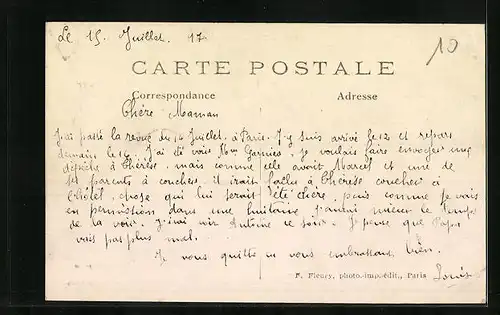 Le 15 Juillet. 17
10
CARTE POSTALE
Correspondance
Adresse
Chère Maman
J'ai passé la revue du 14 Juillet, à Paris. J'y suis arrivé le 12 et repars
demain le 16. J'ai été voir Mme Garnier, je voulais faire envoyer une
dépêche à Thérèse, mais comme elle avait Marcel et une de
ses parents à coucher il aurait fallu à Thérèse coucher à
l'hôtel, chose qui lui serait été chère, puis comme je vais
en permission dans une huitaine, j'aurai mieux le temps
de la voir. J'irai voir Antoine ce soir. Je pense que Papa
vais pas plus mal.
Je vous quitte en vous embrassant bien.
F. Fleury, photo.-imp.-édit., Paris
Louis